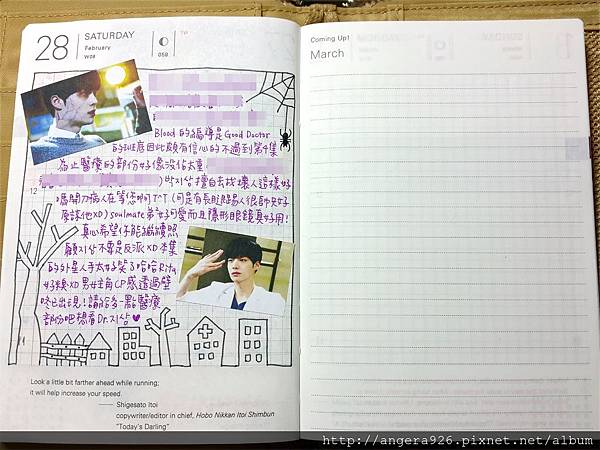 28
SATURDAY
February
W08
058
Blood 的編導是 Good Doctor
的班底因此頗有信心的不過到第4集
為止醫療的部份好像沒佔太重
박지상擅自去找壞人這樣好
嗎開刀病人在等您啊T^T
原諒他XD) soulmate 弟弟好可愛而且隱形眼鏡真好用!
真心希望伃能繼續照
顧지상不要是反派XD本集
的外星人手太好笑了哈哈 Rita
好辣XD 男女主角CP感透過壁
咚已出現!請給多一點醫療
部份吧想看Dr.지상♥
12
Look a little bit farther ahead while running;
it will help increase your speed.
Shigesato Itoi
copywriter/editor in chief, Hobo Nikkan Itoi Shimbun
"Today's Darling"
Coming Up!
March
http://angera926.pixnet.net/album